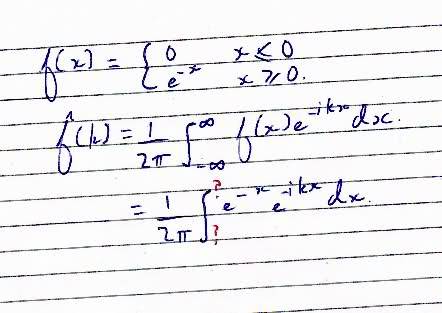 f(x) = { 0 x ≤ 0
e^{-x} x ≥ 0.
f̂(k) = 1/2π ∫_{-∞}^{∞} f(x) e^{-ikx} dx.
= 1/2π ∫_{?}^{?} e^{-x} e^{-ikx} dx.